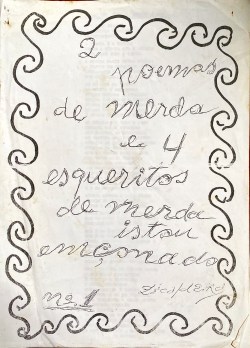 2
poemas
de merda
e 4
esqueritos
de merda
istou
emçonado
nº 1